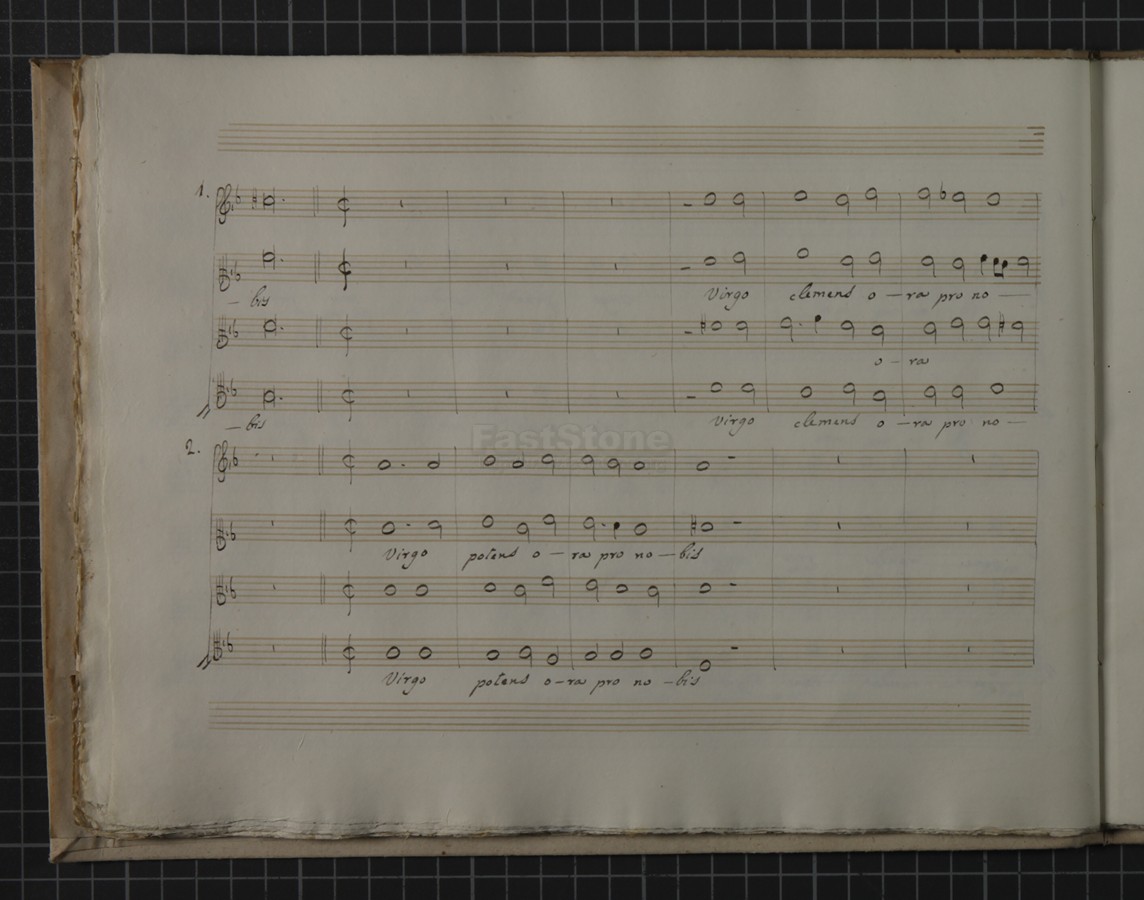 1.
— bis
Virgo clemens o — ra pro no —
o — ra
— bis
Virgo clemens o — ra pro no —
FastStone
2.
Virgo potens o — ra pro no — bis
Virgo potens o — ra pro no — bis